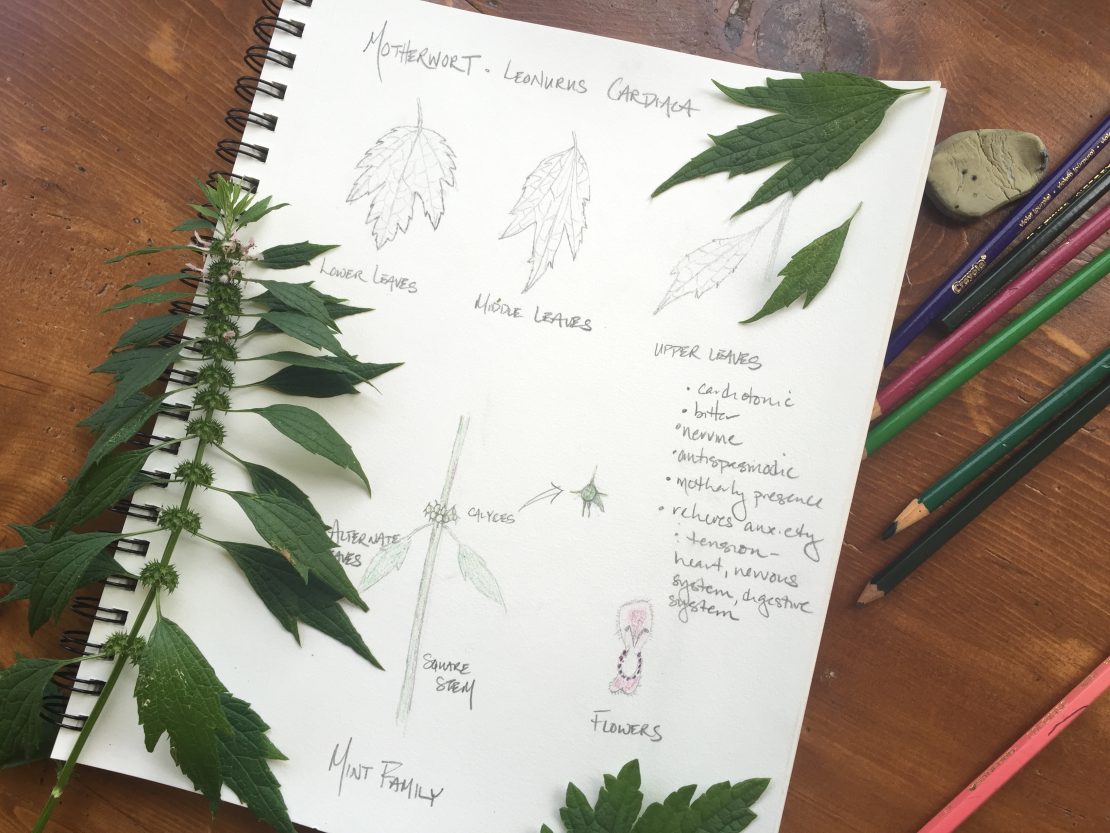 MOTHERWORT · LEONURUS CARDIACA
LOWER LEAVES
MIDDLE LEAVES
UPPER LEAVES
• cardiotonic
• bitter
• nervine
• antispasmodic
• motherly presence
• relieves anxiety
: tension -
heart, nervous
system, digestive
system
CALYCES
ALTERNATE
SQUARE
STEM
FLOWERS
MINT FAMILY
Crayola